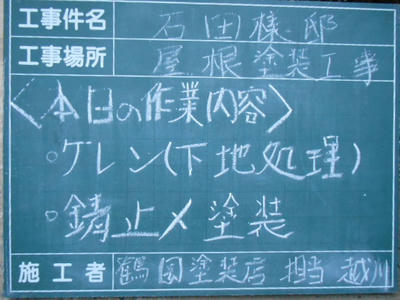 工事件名 石田様邸
工事場所 屋根塗装工事
〈本日の作業内容〉
○ケレン(下地処理)
○錆止メ塗装
施工者 鶴岡塗装店 担当 越川